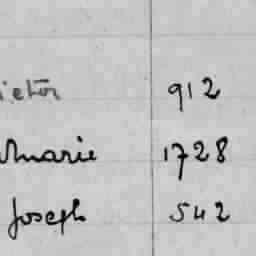 ictor 912
marie 1728
Joseph 542